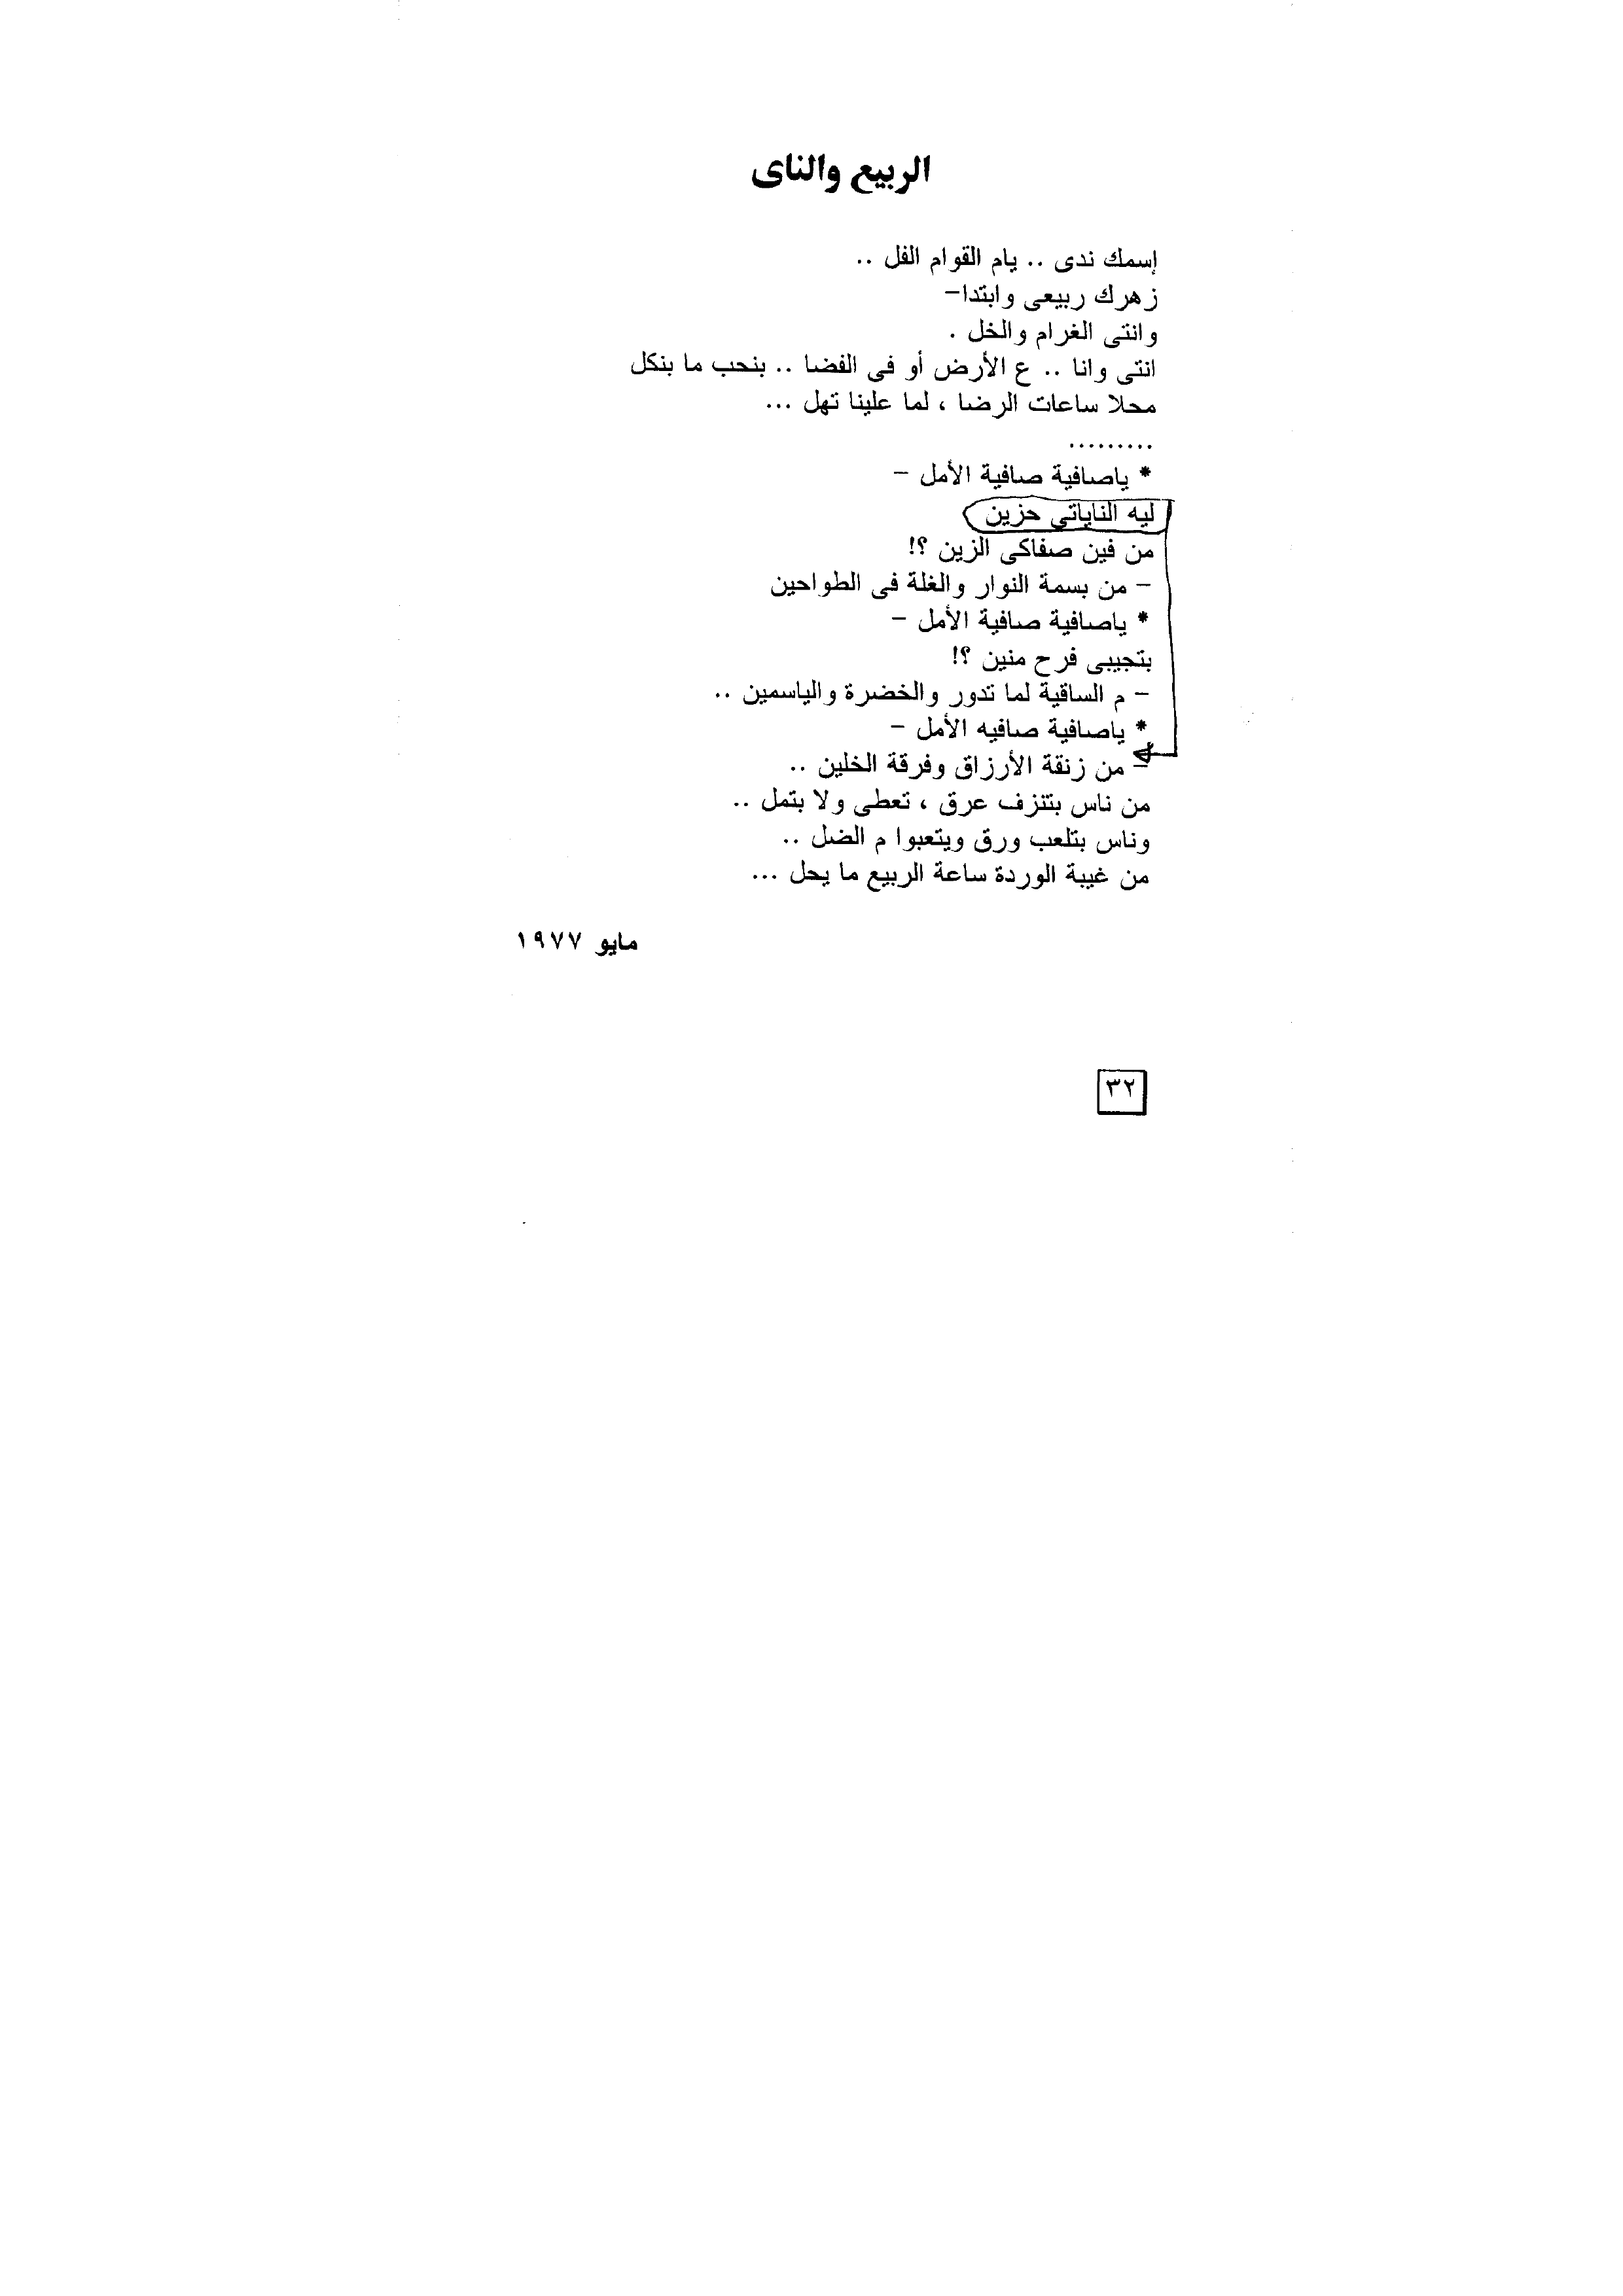 الربيع والناى
إسمك ندى .. يام القوام الفل ..
زهرك ربيعى وابتدا-
وانتى الغرام والخل .
انتى وانا .. ع الأرض أو فى الفضا .. بنحب ما بنكل
محلا ساعات الرضا ، لما علينا تهل ...
.........
* ياصافية صافية الأمل -
ليه الناياتى حزين
من فين صفاكى الزين ؟!
- من بسمة النوار والغلة فى الطواحين
* ياصافية صافية الأمل -
بتجيبى فرح منين ؟!
- م الساقية لما تدور والخضرة والياسمين ..
* ياصافية صافيه الأمل -
- من زنقة الأرزاق وفرقة الخلين ..
من ناس بتنزف عرق ، تعطى ولا بتمل ..
وناس بتلعب ورق ويتعبوا م الضل ..
من غيبة الوردة ساعة الربيع ما يحل ...
مايو ١٩٧٧
٣٢